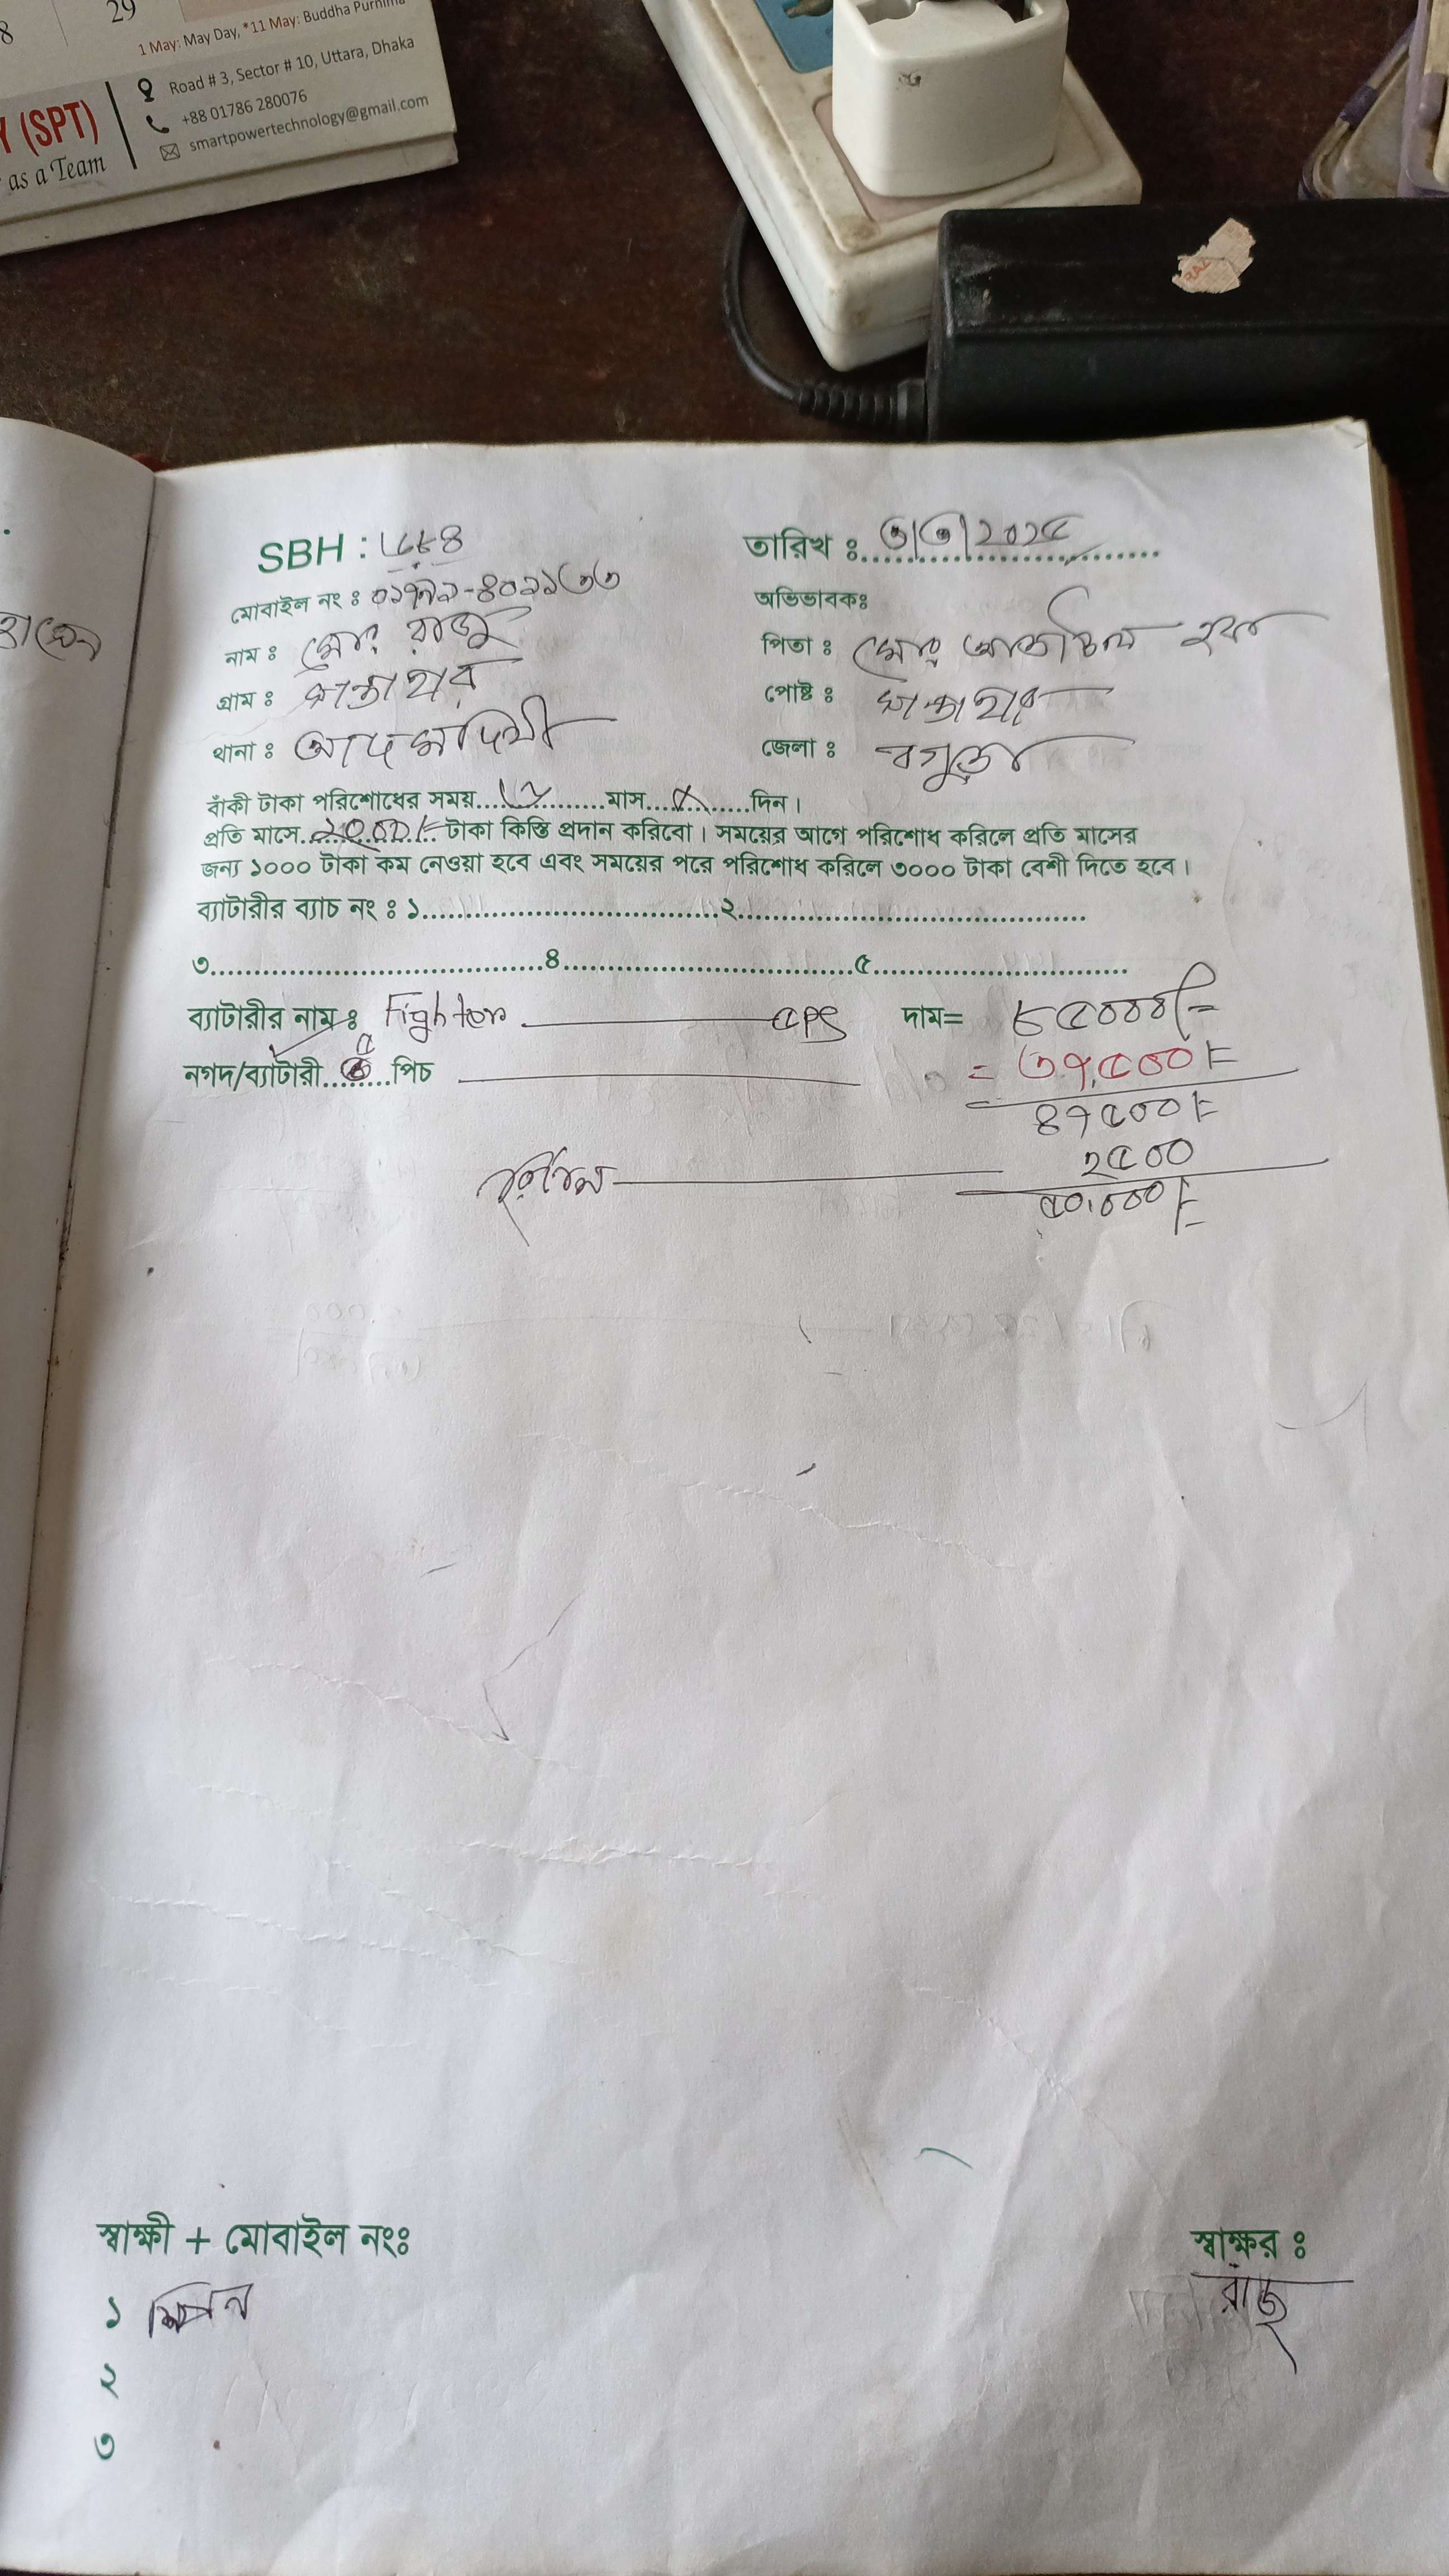 29
1 May: May Day, *11 May: Buddha Purnima
Road # 3, Sector # 10, Uttara, Dhaka
+88 01786 280076
smartpowertechnology@gmail.com
(SPT)
as a Team
SBH :
তারিখ ঃ ৩|৩|২০২৫
মোবাইল নং ঃ
অভিভাবকঃ
নাম ঃ মোঃ রাজু
পিতা ঃ মোঃ
গ্রাম ঃ সান্তাহার
পোষ্ট ঃ সান্তাহার
থানা ঃ আদমদিঘী
জেলা ঃ বগুড়া
বাঁকী টাকা পরিশোধের সময়..............মাস...........দিন।
প্রতি মাসে..............টাকা কিস্তি প্রদান করিবো। সময়ের আগে পরিশোধ করিলে প্রতি মাসের
জন্য ১০০০ টাকা কম নেওয়া হবে এবং সময়ের পরে পরিশোধ করিলে ৩০০০ টাকা বেশী দিতে হবে।
ব্যাটারীর ব্যাচ নং ঃ ১..................................২........................................
৩......................................৪.................................৫.............................
ব্যাটারীর নাম ঃ Fighter ৫PS দাম= ৮৫০০০/=
নগদ/ব্যাটারী ৫ পিচ = ৩৭,৫০০/=
৪৭৫০০/=
২৫০০
৫০,০০০/=
স্বাক্ষী + মোবাইল নংঃ
স্বাক্ষর ঃ
১
রাজু
২
৩